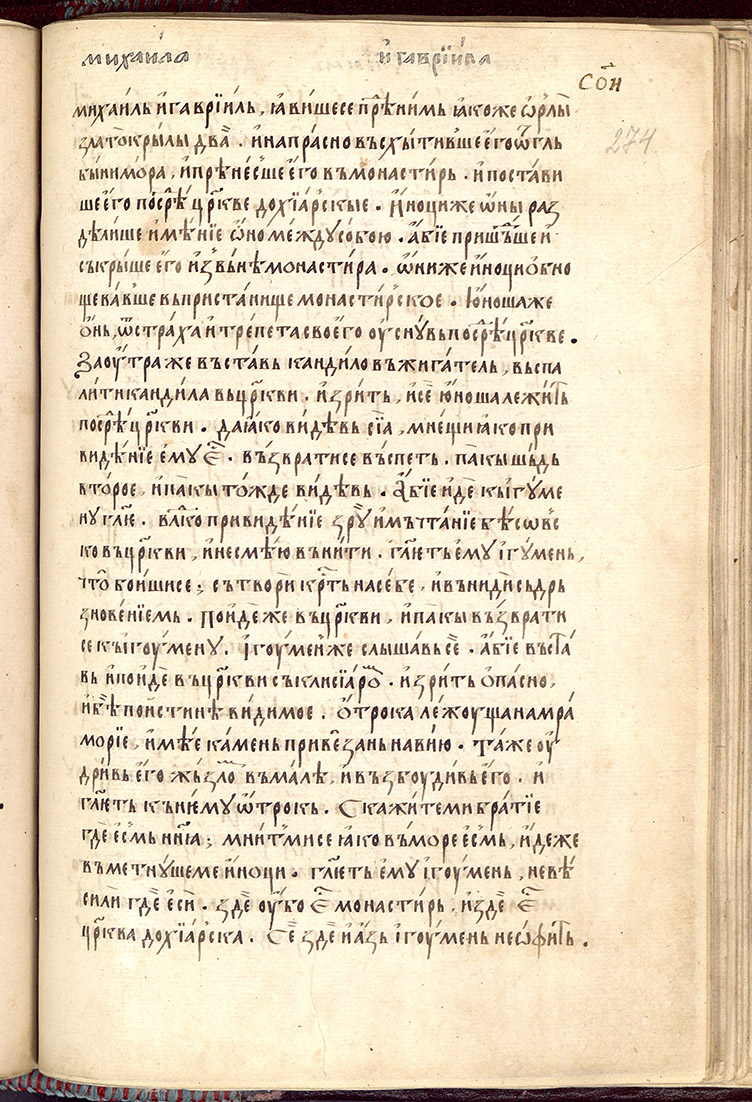 михаи́ла и҆гаврїи́ла
со҃и
274
михаиль и҆гаврїиль, ꙗ҆вишесе прѣⷣнимь ꙗкоже ѡ҆рлы̀
златокрылы два̀ . и҆напра́сно въсхы́тивше е҆го ѿгль
бы́ни мо́ра, и҆прѣне́сше е҆го въмонасти́рь . и҆постави
ше е҆го посрⷣѣ цр҃кве дохїа́рскые . и҆ноциже ѡ҆ны раз
дѣлише и҆мѣ́нїе ѡ҆но ме́ждусобою . а҆бїе пришⷣьше и҆
съкрыше е҆го и҆звьнѣ монасти́ра . ѡ҆ниже и҆ноци ѡ҆бно
щева́вше въприста́нище монасти́рское . ю҆ношаже
ѡ҆нь, ѿстра́ха и҆тре́пета свое́го оу҆сну въпосрⷣѣ цр҃кве .
Заоу҆тра же въста́вь кандило въжига́тель, въспа
ли́ти кандила въцр҃кви . и҆зрить, и҆сѐ ю҆ноша лежи́ть
посрⷣѣ цр҃кви . даꙗ҆ко ви́дѣвь сїа̀, мне́щи ꙗ҆ко при
видѣ́нїе е҆му єⷭ҇ . възвратисе въспеть . па́кы шьдь
второе, и҆па́кы то́жде ви́дѣвь . а҆бїе и҆дѐ къи҆гу́ме
ну гл҃ѥ . влⷣко привидѣ́нїе зрⷹ҇ и҆мьчта́нїе бѣсѡвс
ко въцр҃кви, и҆несмѣ́ю вънити . гл҃ѥть е҆му и҆гу́мень,
что̀ бои́шисе ; сътворѝ крⷭ҇ть насе́бе, и҆вънидѝ сьдрь
знове́нїемь . поидѐже въцр҃кви, и҆па́кы възврати
се къи҆гоу́мену . І҆гоу́мен же слы́шавь сѐ . а҆бїе въста́
вь и҆поидѐ въцр҃кви съклисїа́ро̀ⷨ . и҆зрить ѻ҆пасно,
и҆бѣ̀ пои́стинѣ ви́димое . ѻ҆трока ле́жоуща намра́
морїе, и҆мѣ́е ка́мень приве́зань навїю . та́же оу҆
дри́вь е҆го же́зло̀ⷨ въма́лѣ, и҆възбоуди́вь е҆го . и҆
гл҃ѥть къне́му ѡ҆трокь . Скажи́те ми бра́тїе
гдѐ е҆смь нн҃ꙗ ; мни́тмисе ꙗ҆ко въморе е҆смь, и҆деже
въметнуше ме и҆ноци . гл҃ѥть е҆му и҆гоу́мень, невѣ́
сили гдѐ е҆си . здѐ оу҆бо єⷭ҇ монасти́рь, и҆здѐ єⷭ҇
цр҃ква дохїа́рска . Сѐ здѐ и҆а́зь и҆гоу́мень неѡ҆фить .